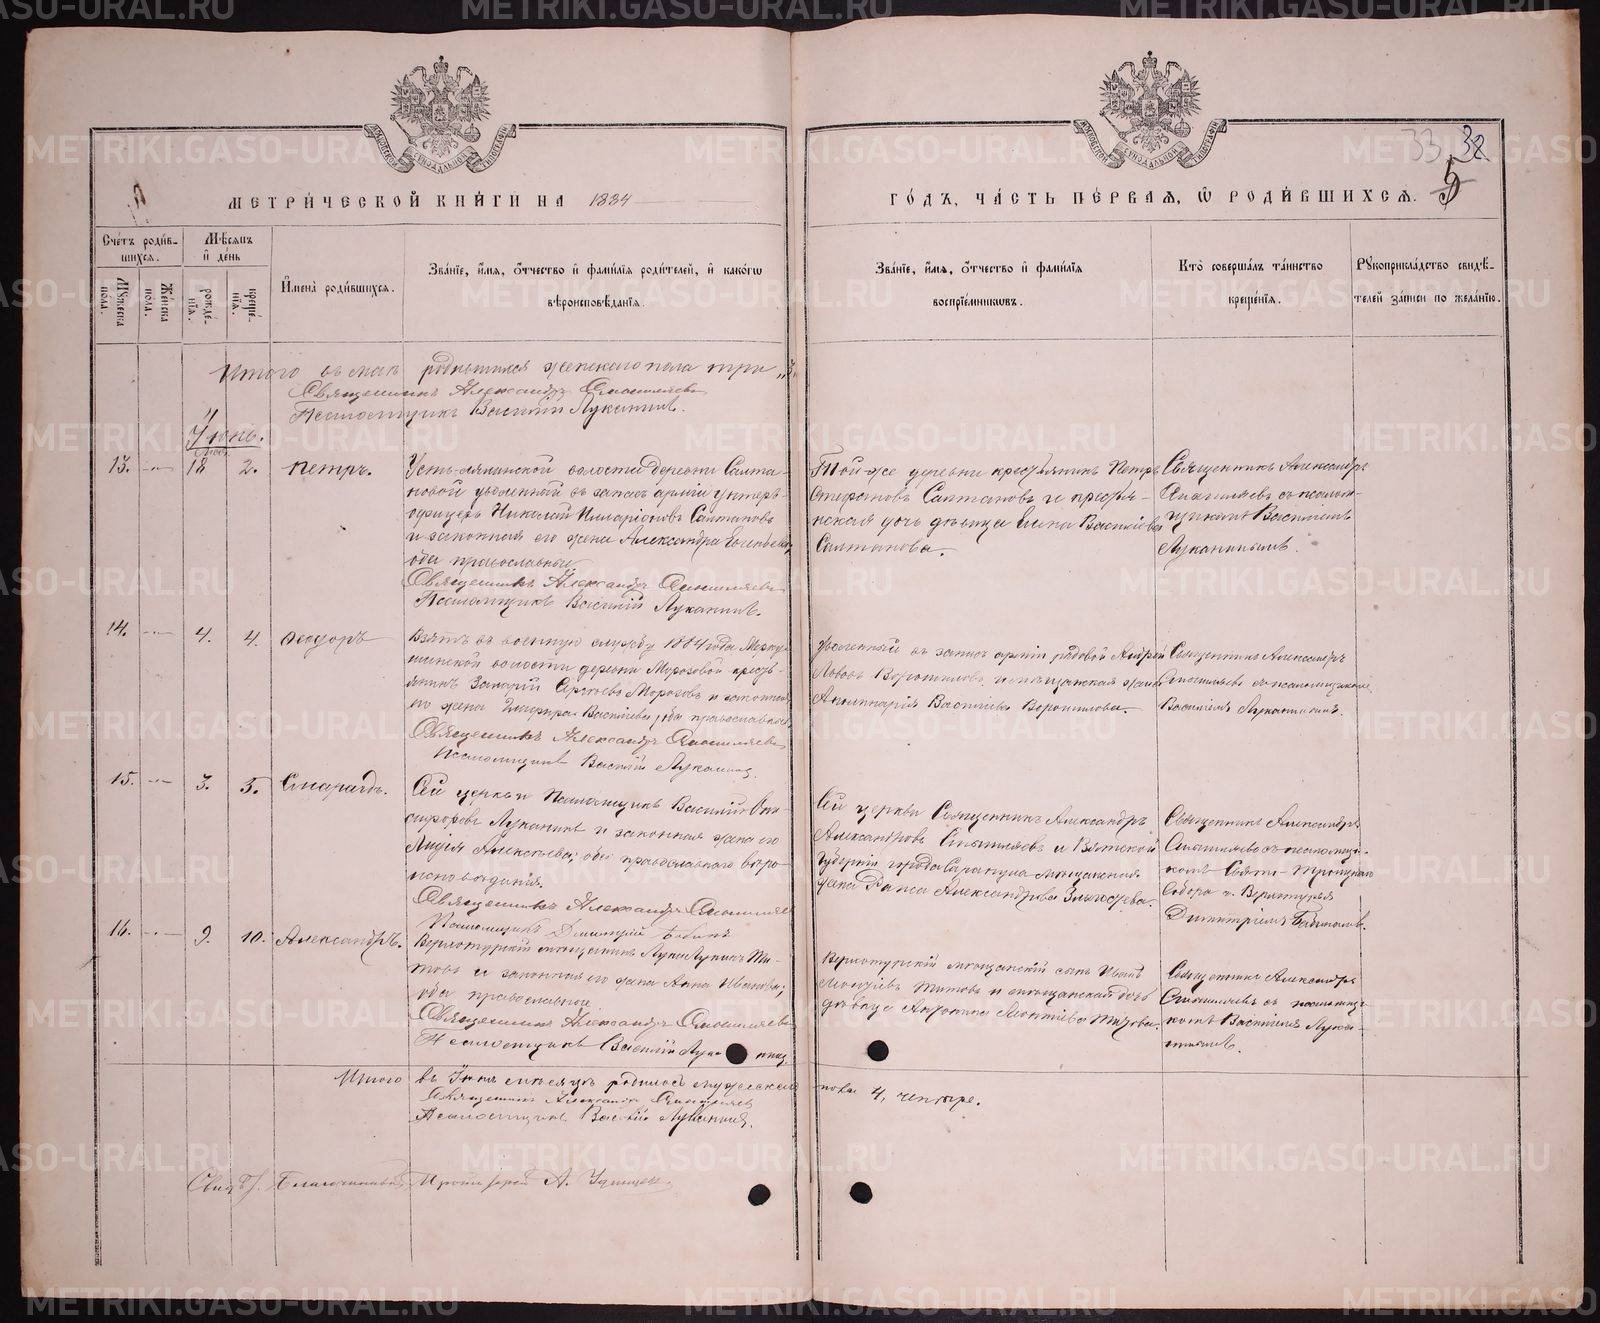 METRIKI.GASO-URAL.RU
33 32
5
МОСКОВСКОЙ СѴНОДАЛЬНОЙ ТИПОГРАФІИ
МОСКОВСКОЙ СѴНОДАЛЬНОЙ ТИПОГРАФІИ
МЕТРИ́ЧЕСКОЙ КНИ́ГИ НА 1884
ГО́ДЪ, ЧА́СТЬ ПЕ́РВАЯ, Ѡ РОДИ́ВШИХСЯ.
Сче́тъ роди́вшихся.
Мѣсяцъ и де́нь
Мꙋжеска пола.
Же́нска пола.
рожде́нїѧ.
креще́нїѧ.
И҆мена̀ роди́вшихся.
Зва́нїе, и҆́мѧ, ѻ҆́тчество и҆ фами́лїѧ роди́телей, и҆ како́гѡ
вѣроисповѣ́данїѧ.
Зва́нїе, и҆́мѧ, ѻ҆́тчество и҆ фами́лїѧ
воспрїе́мникѡвъ.
Кто̀ соверша́лъ та́инство
креще́нїѧ.
Рꙋкоприкла́дство свидѣ́-
телей за́писи по жела́нїю.
Итого въ маѣ родившихся женскаго пола три „3.
Священникъ Александръ
Псаломщикъ Василій Луканинъ.
Іюнь.
13. 18 2. Петръ.
волости деревни Салта-
новой уволенный въ запасъ арміи унтеръ-
офицеръ Николай Илларіоновъ Салтановъ
и законная его жена Александра
оба православные
Священникъ Александръ
Псаломщикъ Василій Луканинъ.
Той-же деревни крестьянинъ Петръ
Стефановъ Салтановъ и крестья-
нская дочь дѣвица Елена Василіева
Салтанова.
Священникъ Александръ
съ псалом-
щикомъ Василіемъ
Луканинымъ.
14. 4. 4. Ѳеодоръ
Взятъ въ военную службу 1884 года Мерку-
шинской волости деревни Морозовой кресть-
янинъ Сергѣевъ Морозовъ и законная
его жена Глафира Василіева, оба православные
Священникъ Александръ
Псаломщикъ Василій Луканинъ.
Уволенный въ запасъ арміи рядовой Андрей
Ворошиловъ и мѣщанская жена
Василіева Ворошилова.
Священникъ Александръ
съ псаломщикомъ
Василіемъ Луканинымъ.
15. 3. 5. Смарагдъ.
Сей церкви Псаломщикъ Василій
Луканинъ и законная жена его
Лидія Алексѣева; оба православнаго вѣро-
исповѣданія.
Священникъ Александръ
Псаломщикъ Димитрій
Сей церкви Священникъ Александръ
Александровъ и Вятской
Губерніи города Сарапула мѣщанская
жена Раиса Александрова
Священникъ Александръ
съ псаломщи-
комъ Свято-Троицкаго
Собора г. Верхотурья
Димитріемъ
16. 9. 10. Александръ.
Верхотурскій мѣщанинъ Лука Лукинъ Ти-
товъ и законная его жена Анна Иванова;
оба православные
Священникъ Александръ
Псаломщикъ Василій
Верхотурскій мѣщанскій сынъ Иванъ
Леонтіевъ Титовъ и мѣщанская дочь
дѣвица Антонина Леонтіева Титова.
Священникъ Александръ
съ псаломщи-
комъ Василіемъ Лука-
нинымъ.
Итого въ Іюнѣ мѣсяцѣ родилось мужескаго
пола 4, четыре.
Священникъ Александръ
Псаломщикъ Василій Луканинъ.
Благочинный Протоіерей А.